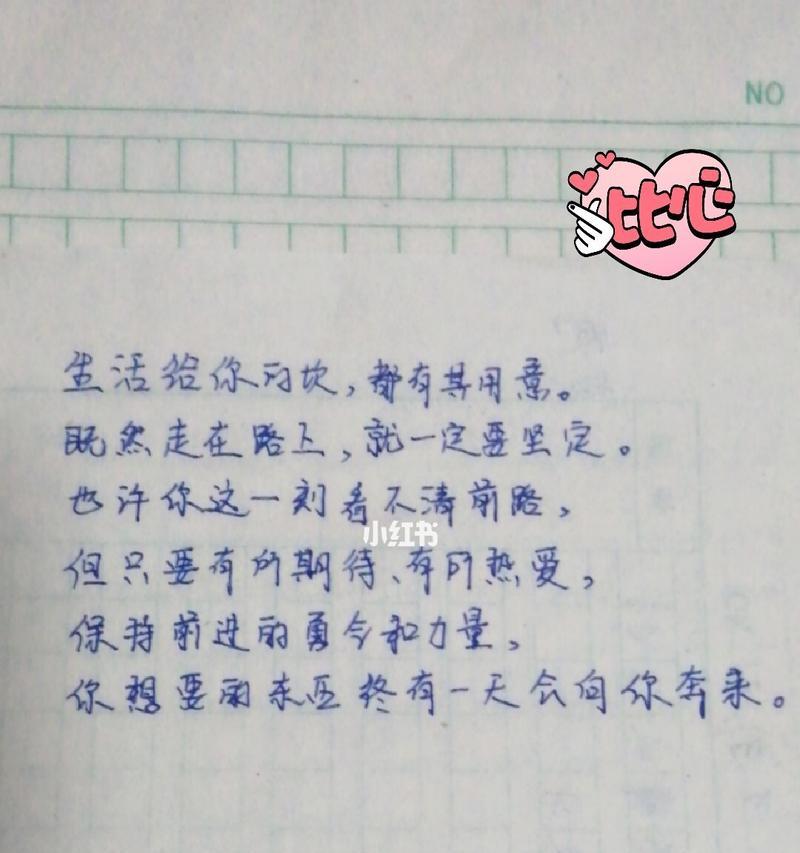 NO
比心
生活给你的坎,都有其用意。
既然走在路上,就一定要坚定。
也许你这一刻看不清前路,
小红书
但只要有所期待、有所热爱,
保持前进的勇令和力量,
你想要的东西终有一天会向你奔来。